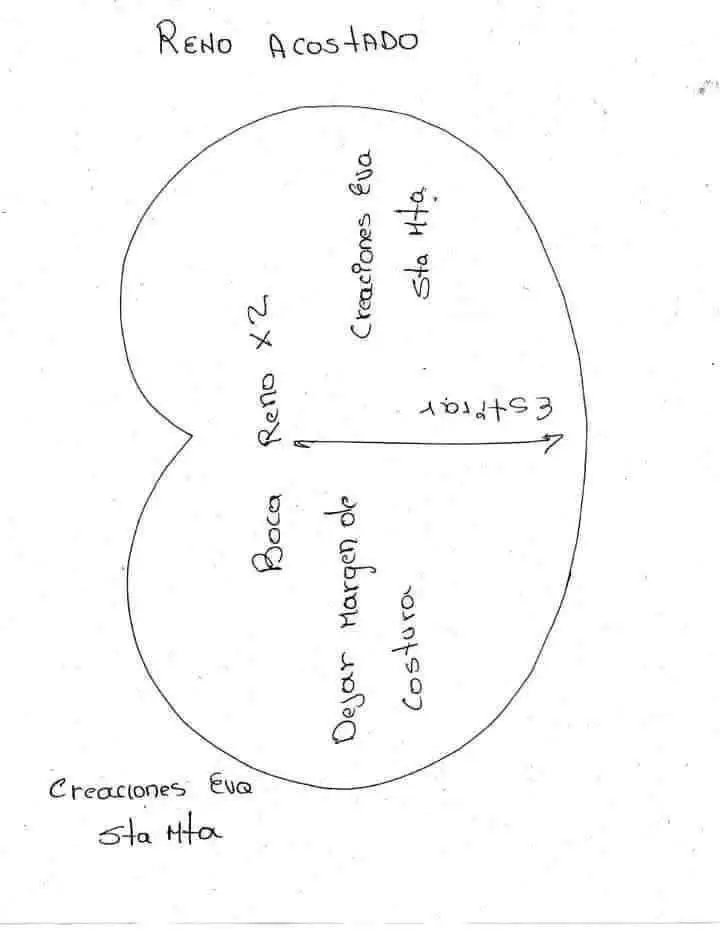 RENO ACOSTADO
Creaciones Eva
Sta Mta.
Boca Reno x2
Estirar
Dejar Margen de
Costura
Creaciones Eva
Sta Mta